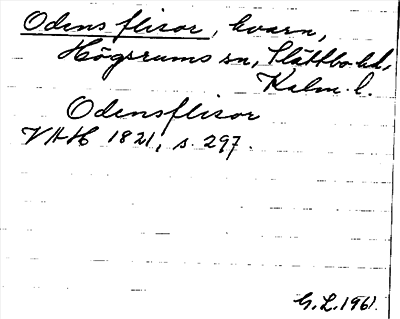 Odens flisor, kvarn,
Högsrums sn, Slättbo hd,
Kalm. l.
Odensflisor
VAH 1821, s. 297.
G.L. 1961.